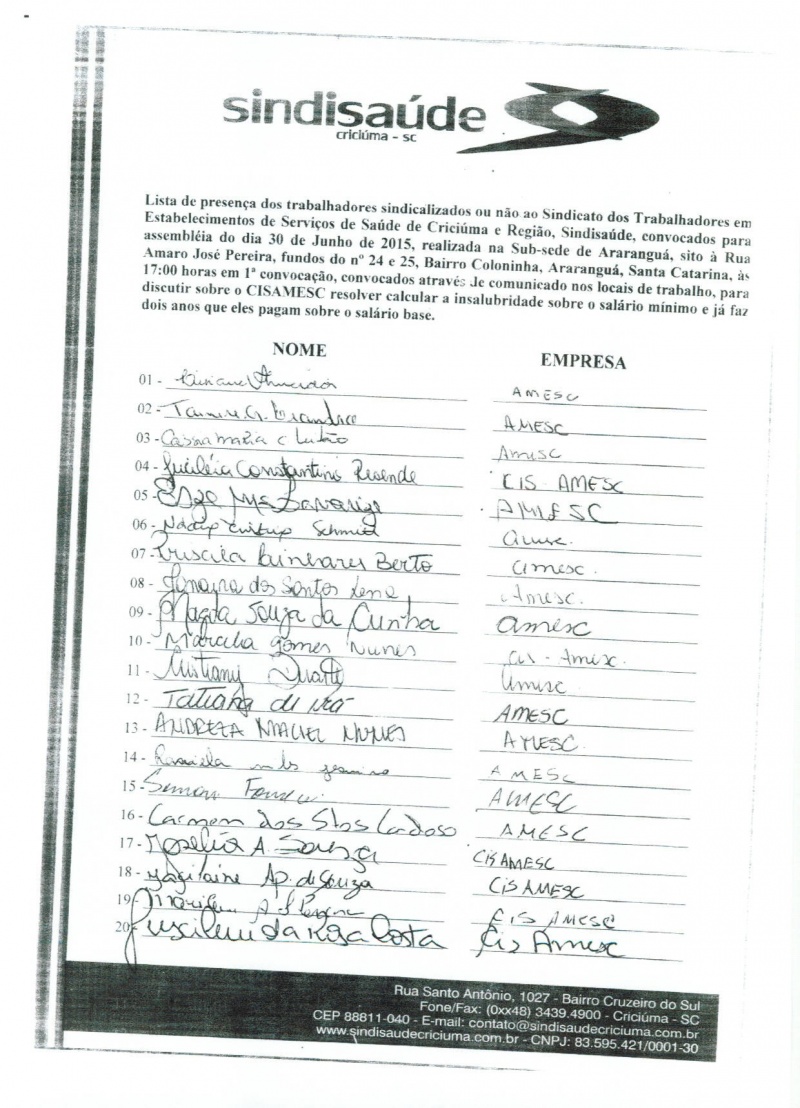 sindisaúde
criciúma - sc
Lista de presença dos trabalhadores sindicalizados ou não ao Sindicato dos Trabalhadores em
Estabelecimentos de Serviços de Saúde de Criciúma e Região, Sindisaúde, convocados para
assembléia do dia 30 de Junho de 2015, realizada na Sub-sede de Araranguá, sito à Rua
Amaro José Pereira, fundos do nº 24 e 25, Bairro Coloninha, Araranguá, Santa Catarina, às
17:00 horas em 1ª convocação, convocados através de comunicado nos locais de trabalho, para
discutir sobre o CISAMESC resolver calcular a insalubridade sobre o salário mínimo e já faz
dois anos que eles pagam sobre o salário base.
NOME EMPRESA
01 - AMESC
02 - AMESC
03 - Amesc
04 - Constantino Resende CIS AMESC
05 - AMESC
06 - Schmidt
07 - Priscila Berto amesc.
08 - Janaina dos Santos Amesc.
09 - Magda Souza da Cunha amesc
10 - Marcelia Gomes Nunes Cis - Amesc.
11 - Duarte Amesc
12 - Tatiana AMESC
13 - ANDREZA MACIEL NUNES AMESC
14 - AMESC
15 - AMESC
16 - Carmem dos Stos Cardoso AMESC
17 - Roselia A. Souza CISAMESC
18 - Ap. de Souza CIS AMESC
19 - CIS AMESC
20 - da Rosa Costa Cis Amesc
Rua Santo Antônio, 1027 - Bairro Cruzeiro do Sul
Fone/Fax: (0xx48) 3439.4900 - Criciúma - SC
CEP 88811-040 - E-mail: contato@sindisaudecriciuma.com.br
www.sindisaudecriciuma.com.br - CNPJ: 83.595.421/0001-30